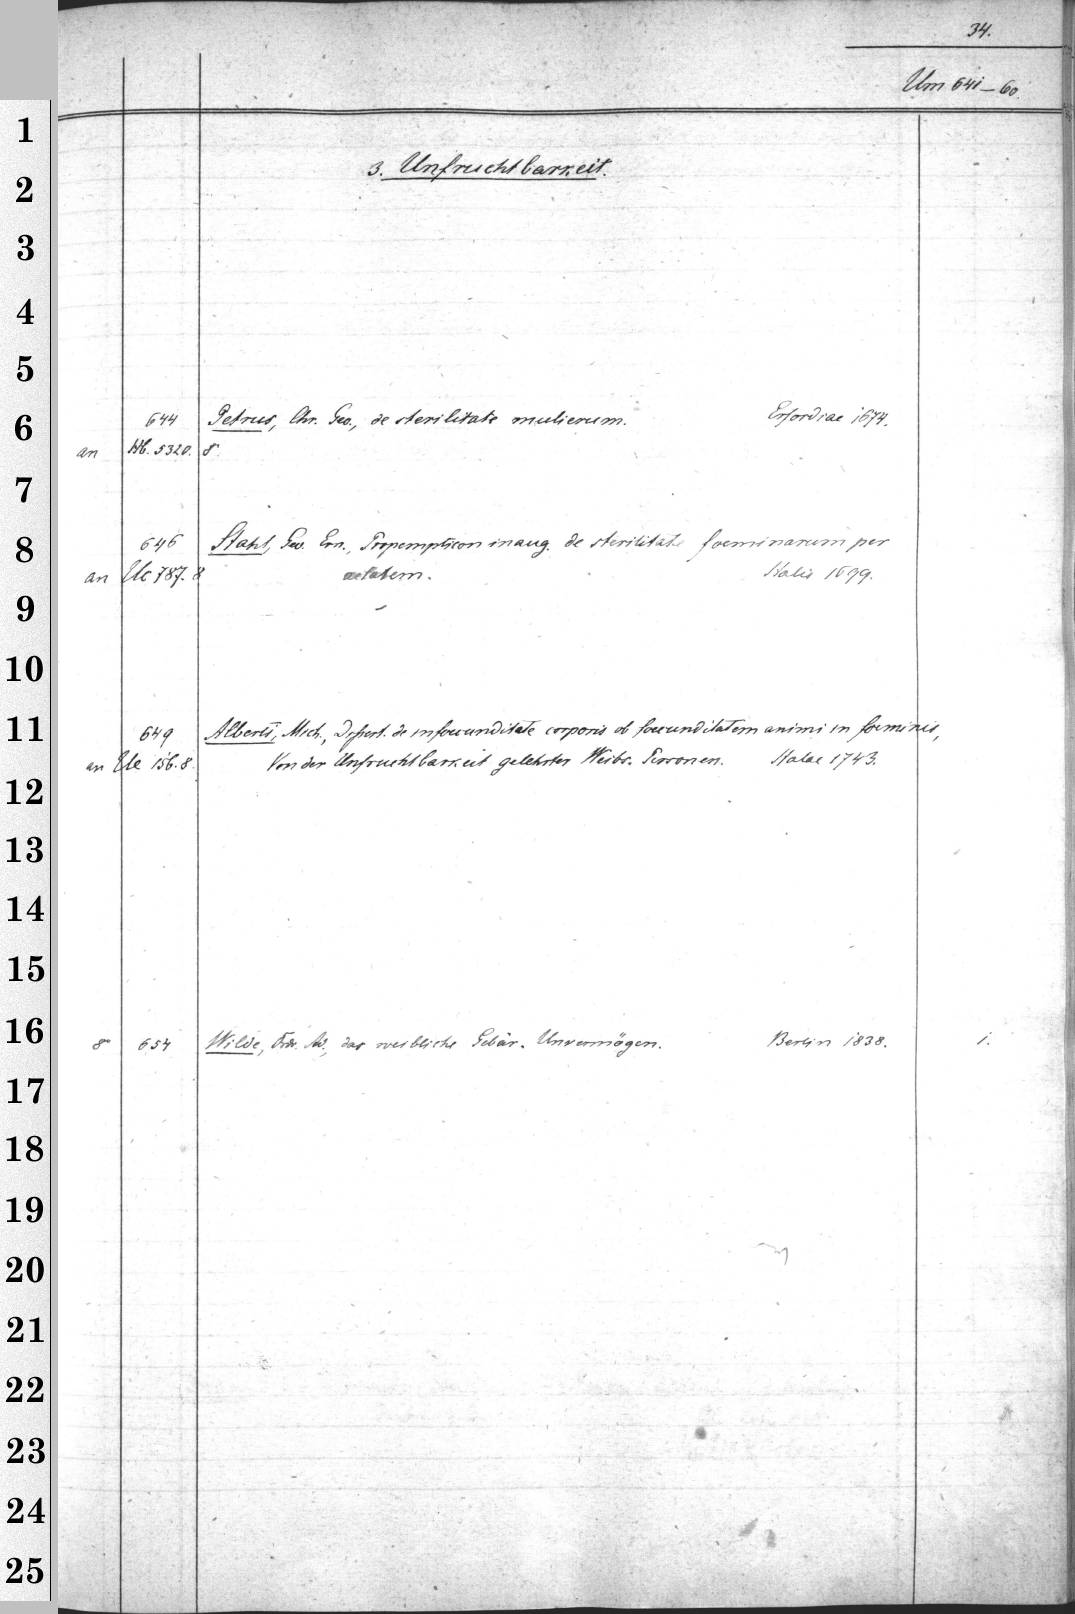 34.
Um 641-60.
1
3. Unfruchtbarkeit.
2
3
4
5
6
644 Petrus, Chr. Geo., de sterilitate mulierum. Erfordiae 1674.
an Hb. 5320. 8°
7
8
646 Stahl, Geo. Ern., Propempticon inaug. de sterilitate foeminarum per
an Uc 787. 8 aetatem. Halis 1699.
9
10
11
649 Alberti, Mich., Dissert. de infoecunditate corporis ob foecunditatem animi in foeminis,
an 156. 8. Von der Unfruchtbarkeit gelehrter Weibs-Personen. Halae 1743.
12
13
14
15
16
8° 654 Wilde, Frdr. Ad., das weibliche Gebär-Unvermögen. Berlin 1838. 1.
17
18
19
20
21
22
23
24
25